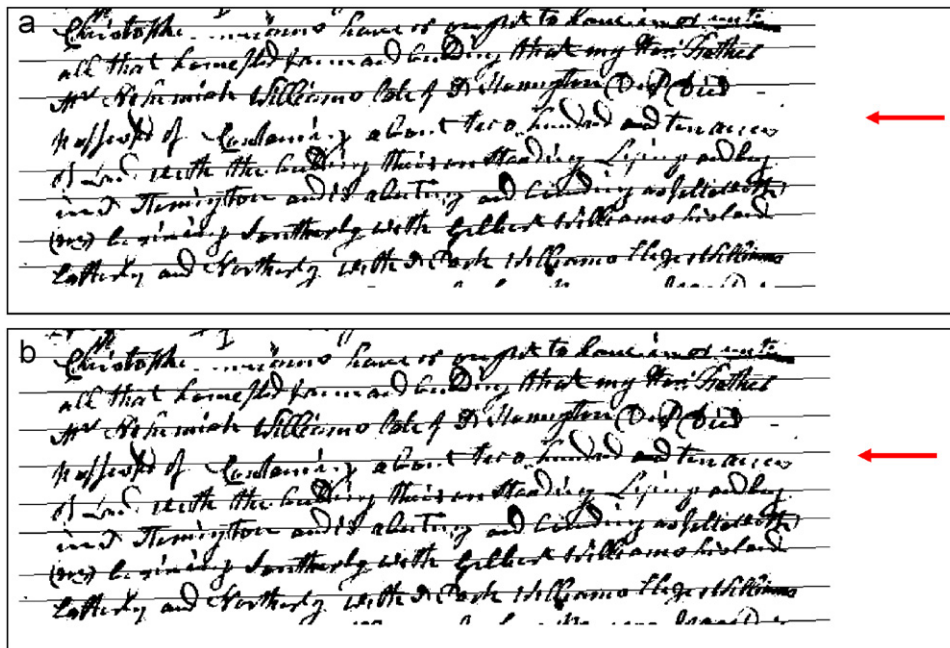 a
Christophe have or ought to have in or unto
all that homested farm and building that my Hon: Father
Mr Nehemiah Williams late of Stonington Died
possessed of Containing about two hundred and ten acres
of Land with the building thereon Standing Lying and being
in Stonington and is abutting and bounding as followeth
begining Southerly with Gilbert Williams his land
Easterly and Northerly with Park Williams Williams
b
Christophe have or ought to have in or unto
all that homested farm and building that my Hon: Father
Mr Nehemiah Williams late of Stonington Died
possessed of Containing about two hundred and ten acres
of Land with the building thereon Standing Lying and being
in Stonington and is abutting and bounding as followeth
begining Southerly with Gilbert Williams his land
Easterly and Northerly with Park Williams Williams